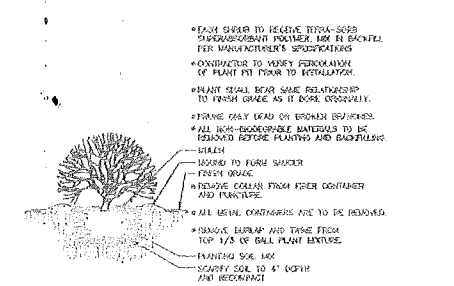 * EACH SHRUB TO RECEIVE TERRA-SORB
SUPERABSORBANT POLYMER, MIX IN BACKFILL
PER MANUFACTURER'S SPECIFICATIONS
* CONTRACTOR TO VERIFY PERCOLATION
OF PLANT PIT PRIOR TO INSTALLATION.
* PLANT SHALL BEAR SAME RELATIONSHIP
TO FINISH GRADE AS IT BORE ORIGINALLY.
* PRUNE ONLY DEAD OR BROKEN BRANCHES.
* ALL NON-BIODEGRABLE MATERIALS TO BE
REMOVED BEFORE PLANTING AND BACKFILLING.
MULCH
MOUND TO FORM SAUCER
FINISH GRADE
* REMOVE COLLAR FROM FIBER CONTAINER
AND PUNCTURE.
* ALL METAL CONTAINERS ARE TO BE REMOVED.
* REMOVE BURLAP AND TWINE FROM
TOP 1/3 OF BALL PLANT MIXTURE.
PLANTING SOIL MIX
SCARIFY SOIL TO 4" DEPTH
AND RECOMPACT